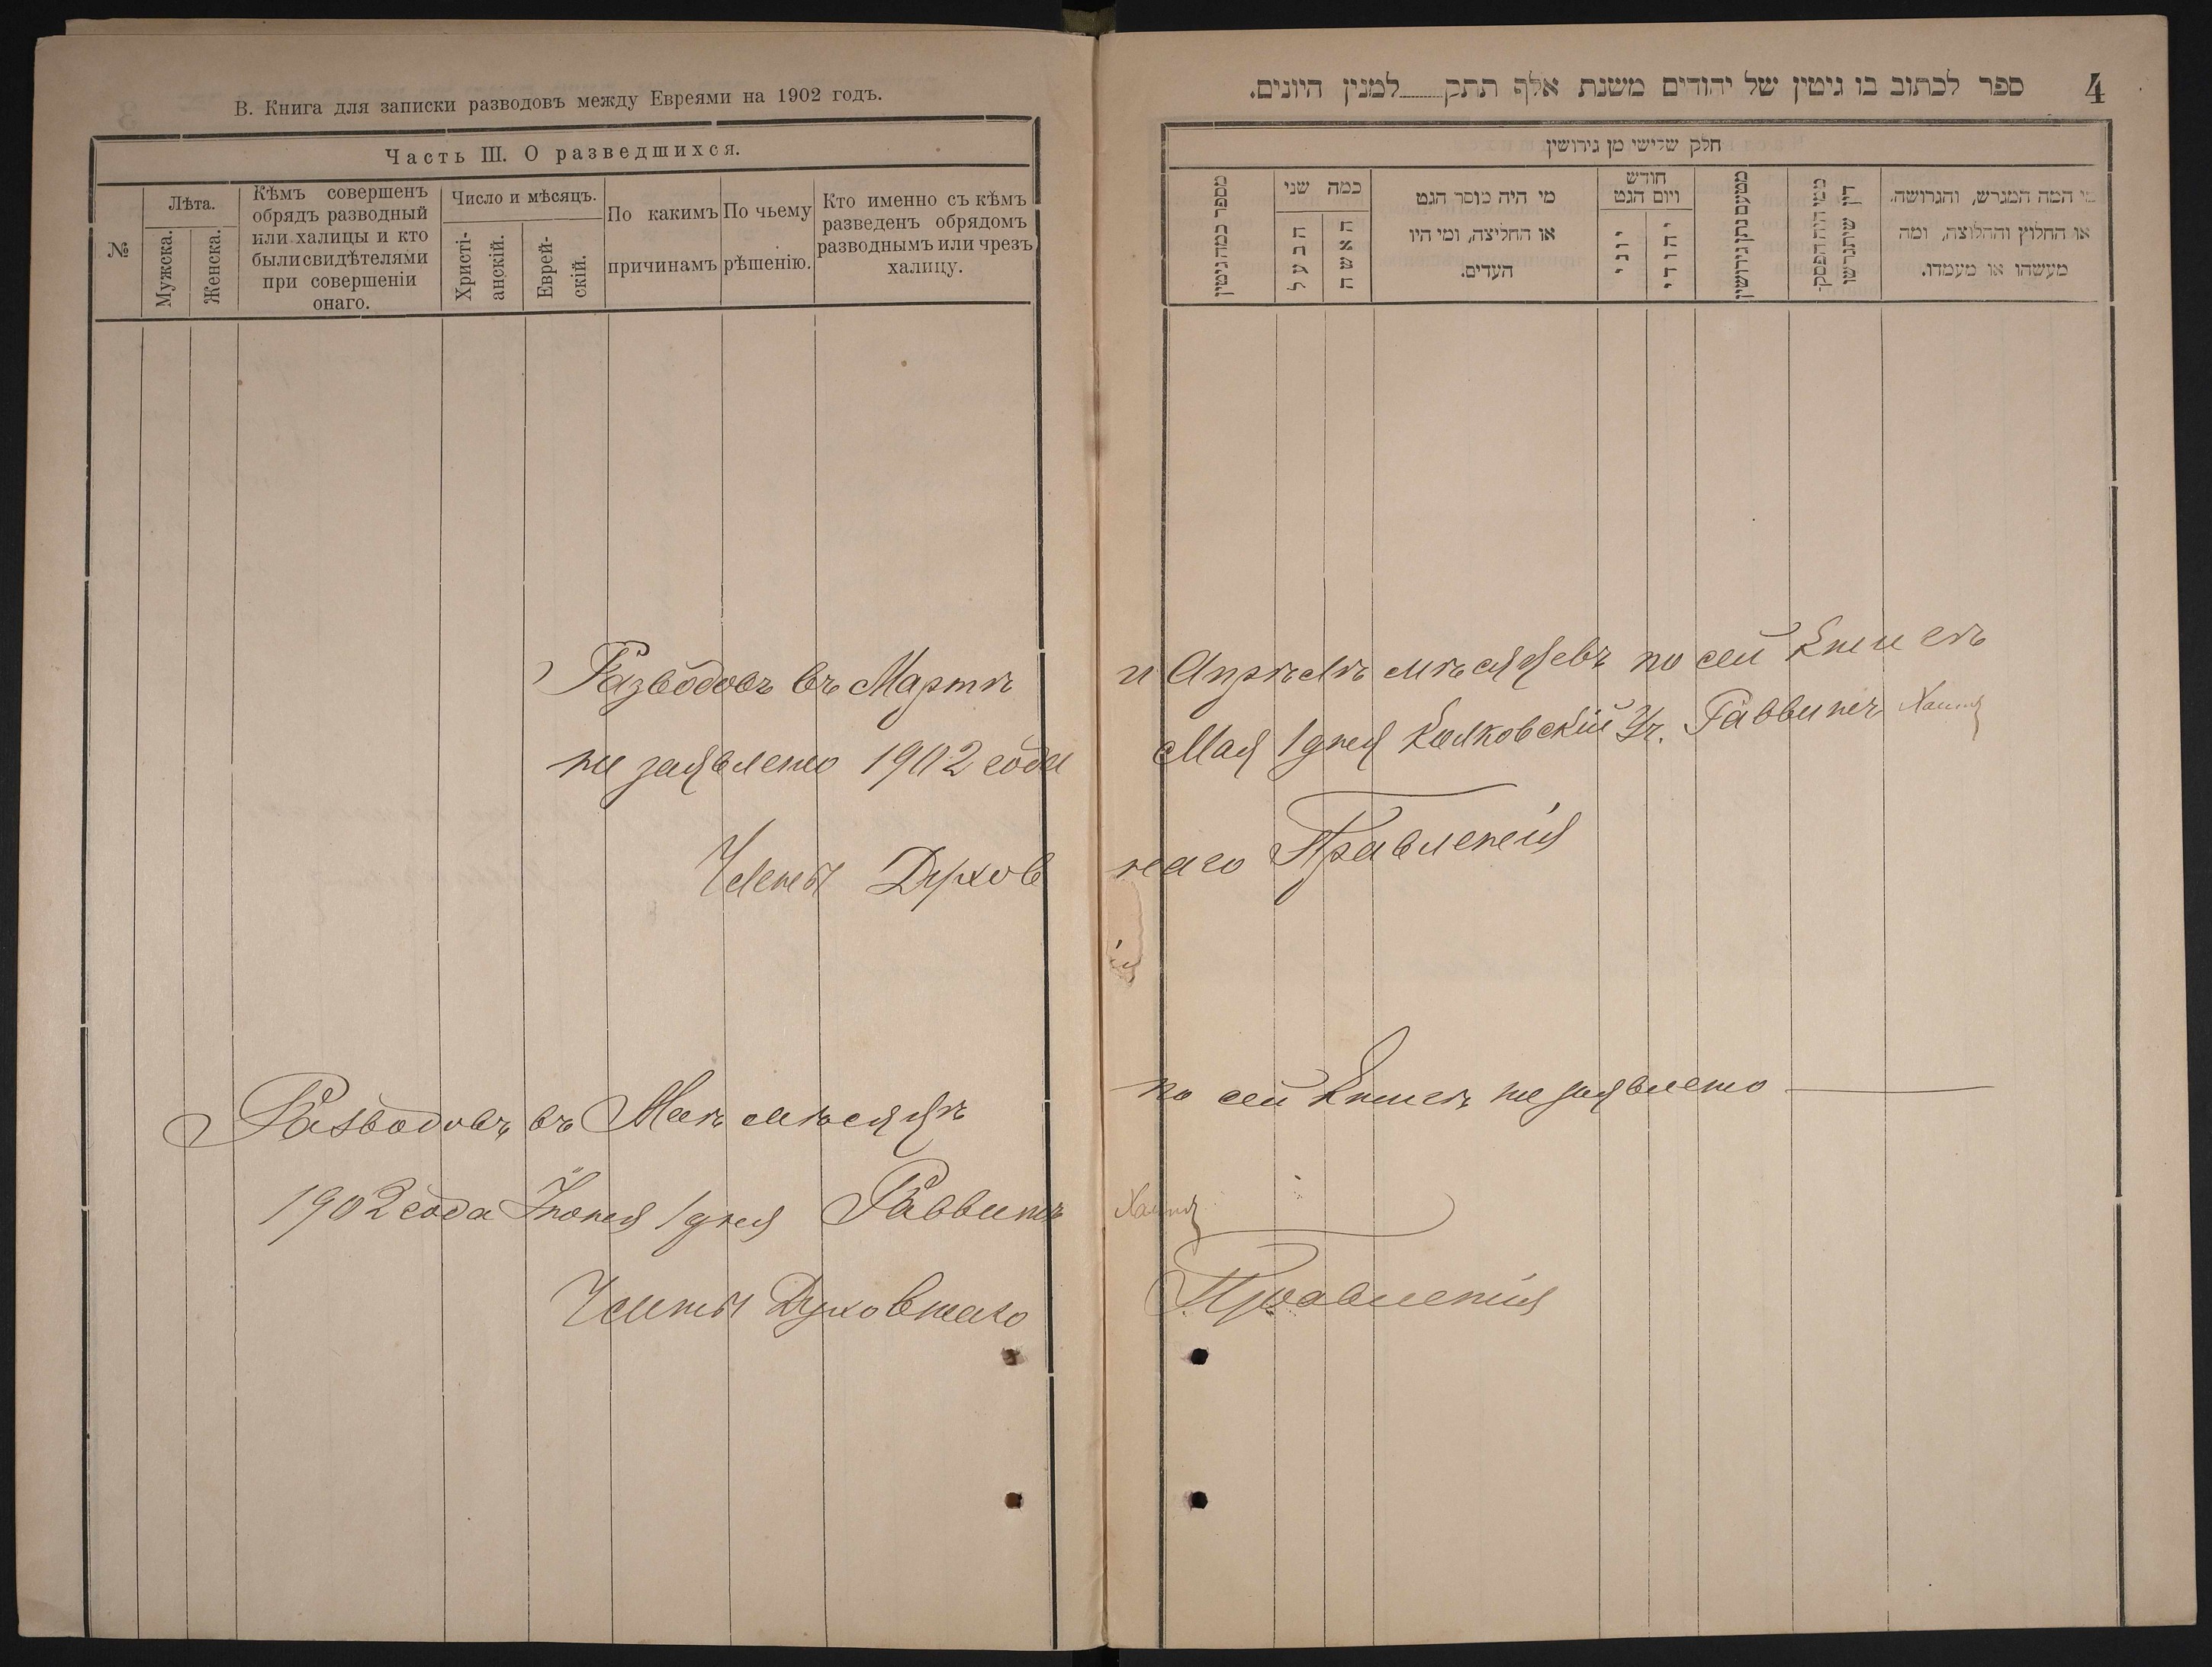 В. Книга для записки разводовъ между Евреями на 1902 годъ.
Часть III. О разведшихся.
№
Лѣта.
Мужска.
Женска.
Кѣмъ совершенъ
обрядъ разводный
или халицы и кто
были свидѣтелями
при совершеніи
онаго.
Число и мѣсяцъ.
Христі-
анскій.
Еврей-
скій.
По какимъ
причинамъ
По чьему
рѣшенію.
Кто именно съ кѣмъ
разведенъ обрядомъ
разводнымъ или чрезъ
халицу.
4
ספר לכתוב בו גיטין של יהודים משנת אלף תתק למנין היונים.
חלק שלישי מן גירושין
מי המה המגרש, והגרושה,
או החלוץ והחלוצה, ומה
מעשהו או מעמדו.
מפי מי היה הפסק-
דין שיתגרשו
מטעם נתן גירושין
חודש
ויום הגט
יהודי
יוני
מי היה מוסר הגט
או החליצה, ומי היו
העדים.
כמה שני
האשה
הבעל
מספר כמה גיטין
Разводовъ въ Мартѣ и Апрѣлѣ мѣсяцевъ по сей Книгѣ
не заявлено 1902 года Мая 1 дня Колковскій Уч. Раввинъ
Члены Духовнаго Правленія
Разводовъ въ Маѣ мѣсяцѣ по сей Книгѣ не заявлено
1902 года Іюня 1 дня Раввинъ
Члены Духовнаго Правленія